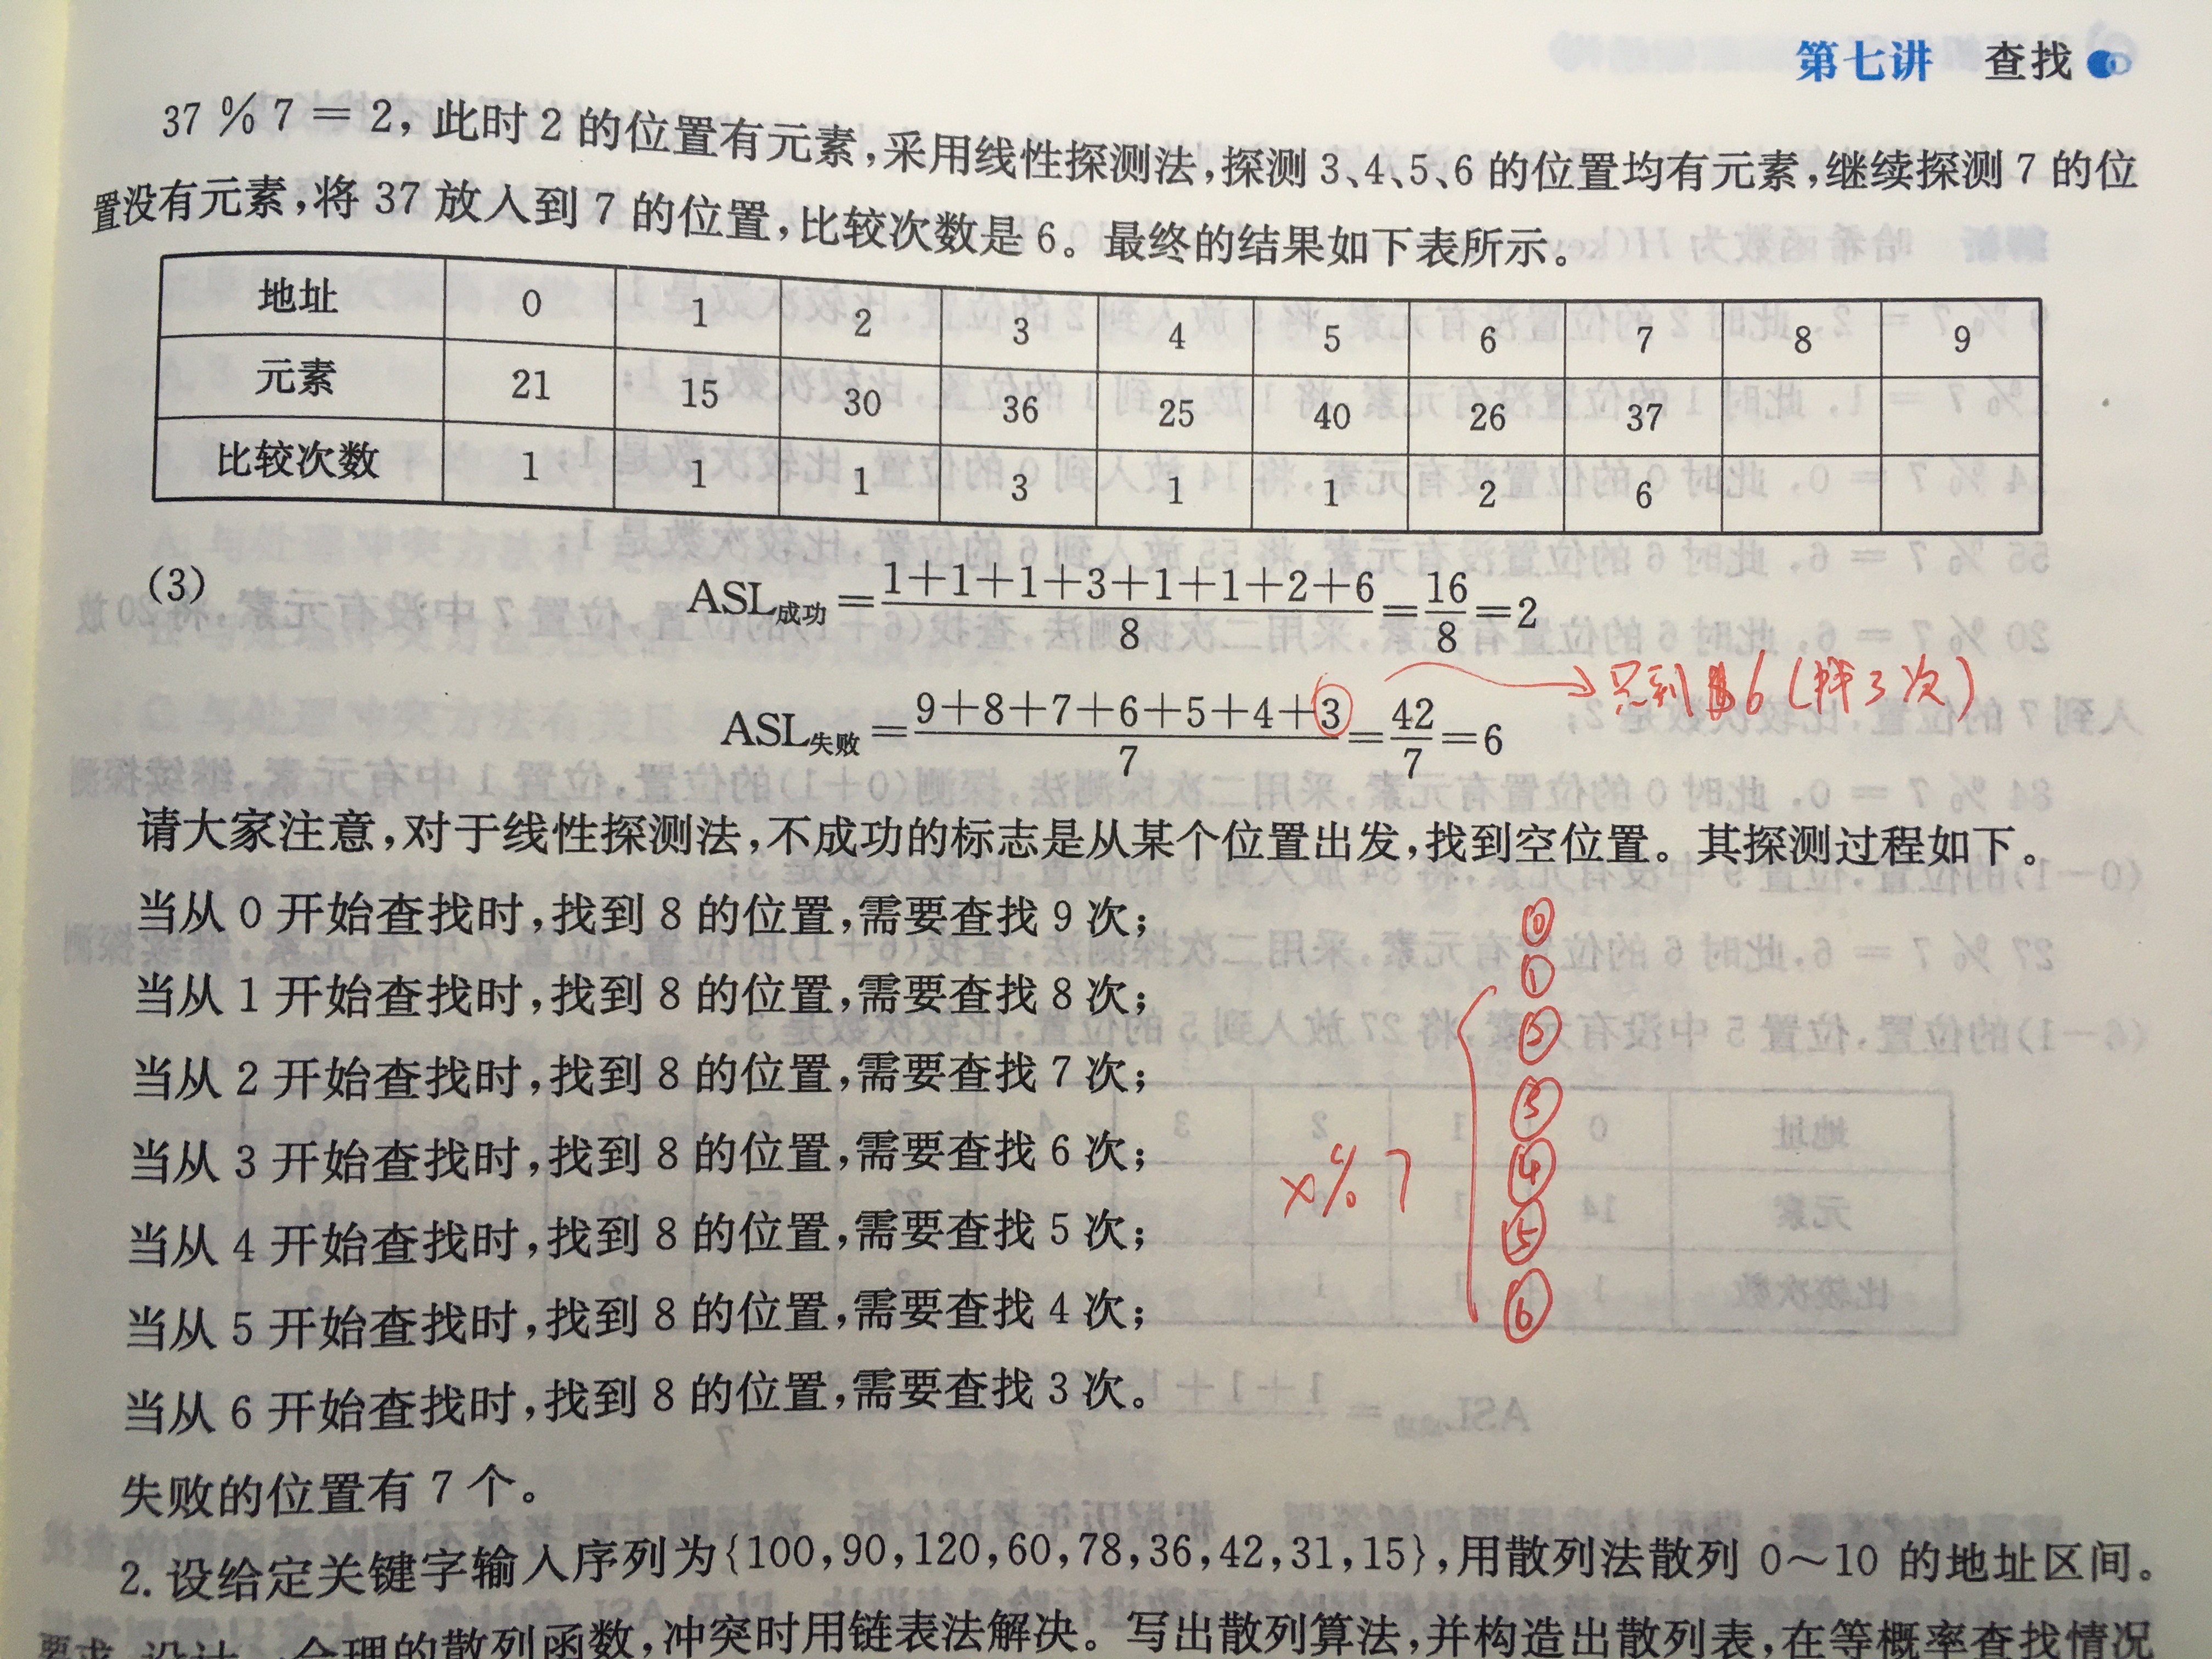 第七讲 查找
37 % 7 = 2, 此时 2 的位置有元素,采用线性探测法,探测 3、4、5、6 的位置均有元素,继续探测 7 的位
置没有元素,将 37 放入到 7 的位置,比较次数是 6。最终的结果如下表所示。
地址 0 1 2 3 4 5 6 7 8 9
元素 21 15 30 36 25 40 26 37
比较次数 1 1 1 3 1 1 2 6
(3) ASL成功=(1+1+1+3+1+1+2+6)/8=16/8=2
只到 6 (共 3 次)
ASL失败=(9+8+7+6+5+4+3)/7=42/7=6
请大家注意,对于线性探测法,不成功的标志是从某个位置出发,找到空位置。其探测过程如下。
当从 0 开始查找时,找到 8 的位置,需要查找 9 次;
当从 1 开始查找时,找到 8 的位置,需要查找 8 次;
当从 2 开始查找时,找到 8 的位置,需要查找 7 次;
当从 3 开始查找时,找到 8 的位置,需要查找 6 次;
当从 4 开始查找时,找到 8 的位置,需要查找 5 次;
当从 5 开始查找时,找到 8 的位置,需要查找 4 次;
当从 6 开始查找时,找到 8 的位置,需要查找 3 次。
x % 7
⓪
①
②
③
④
⑤
⑥
失败的位置有 7 个。
2. 设给定关键字输入序列为{100,90,120,60,78,36,42,31,15},用散列法散列 0～10 的地址区间。
要求 设计一合理的散列函数,冲突时用链表法解决。写出散列算法,并构造出散列表,在等概率查找情况